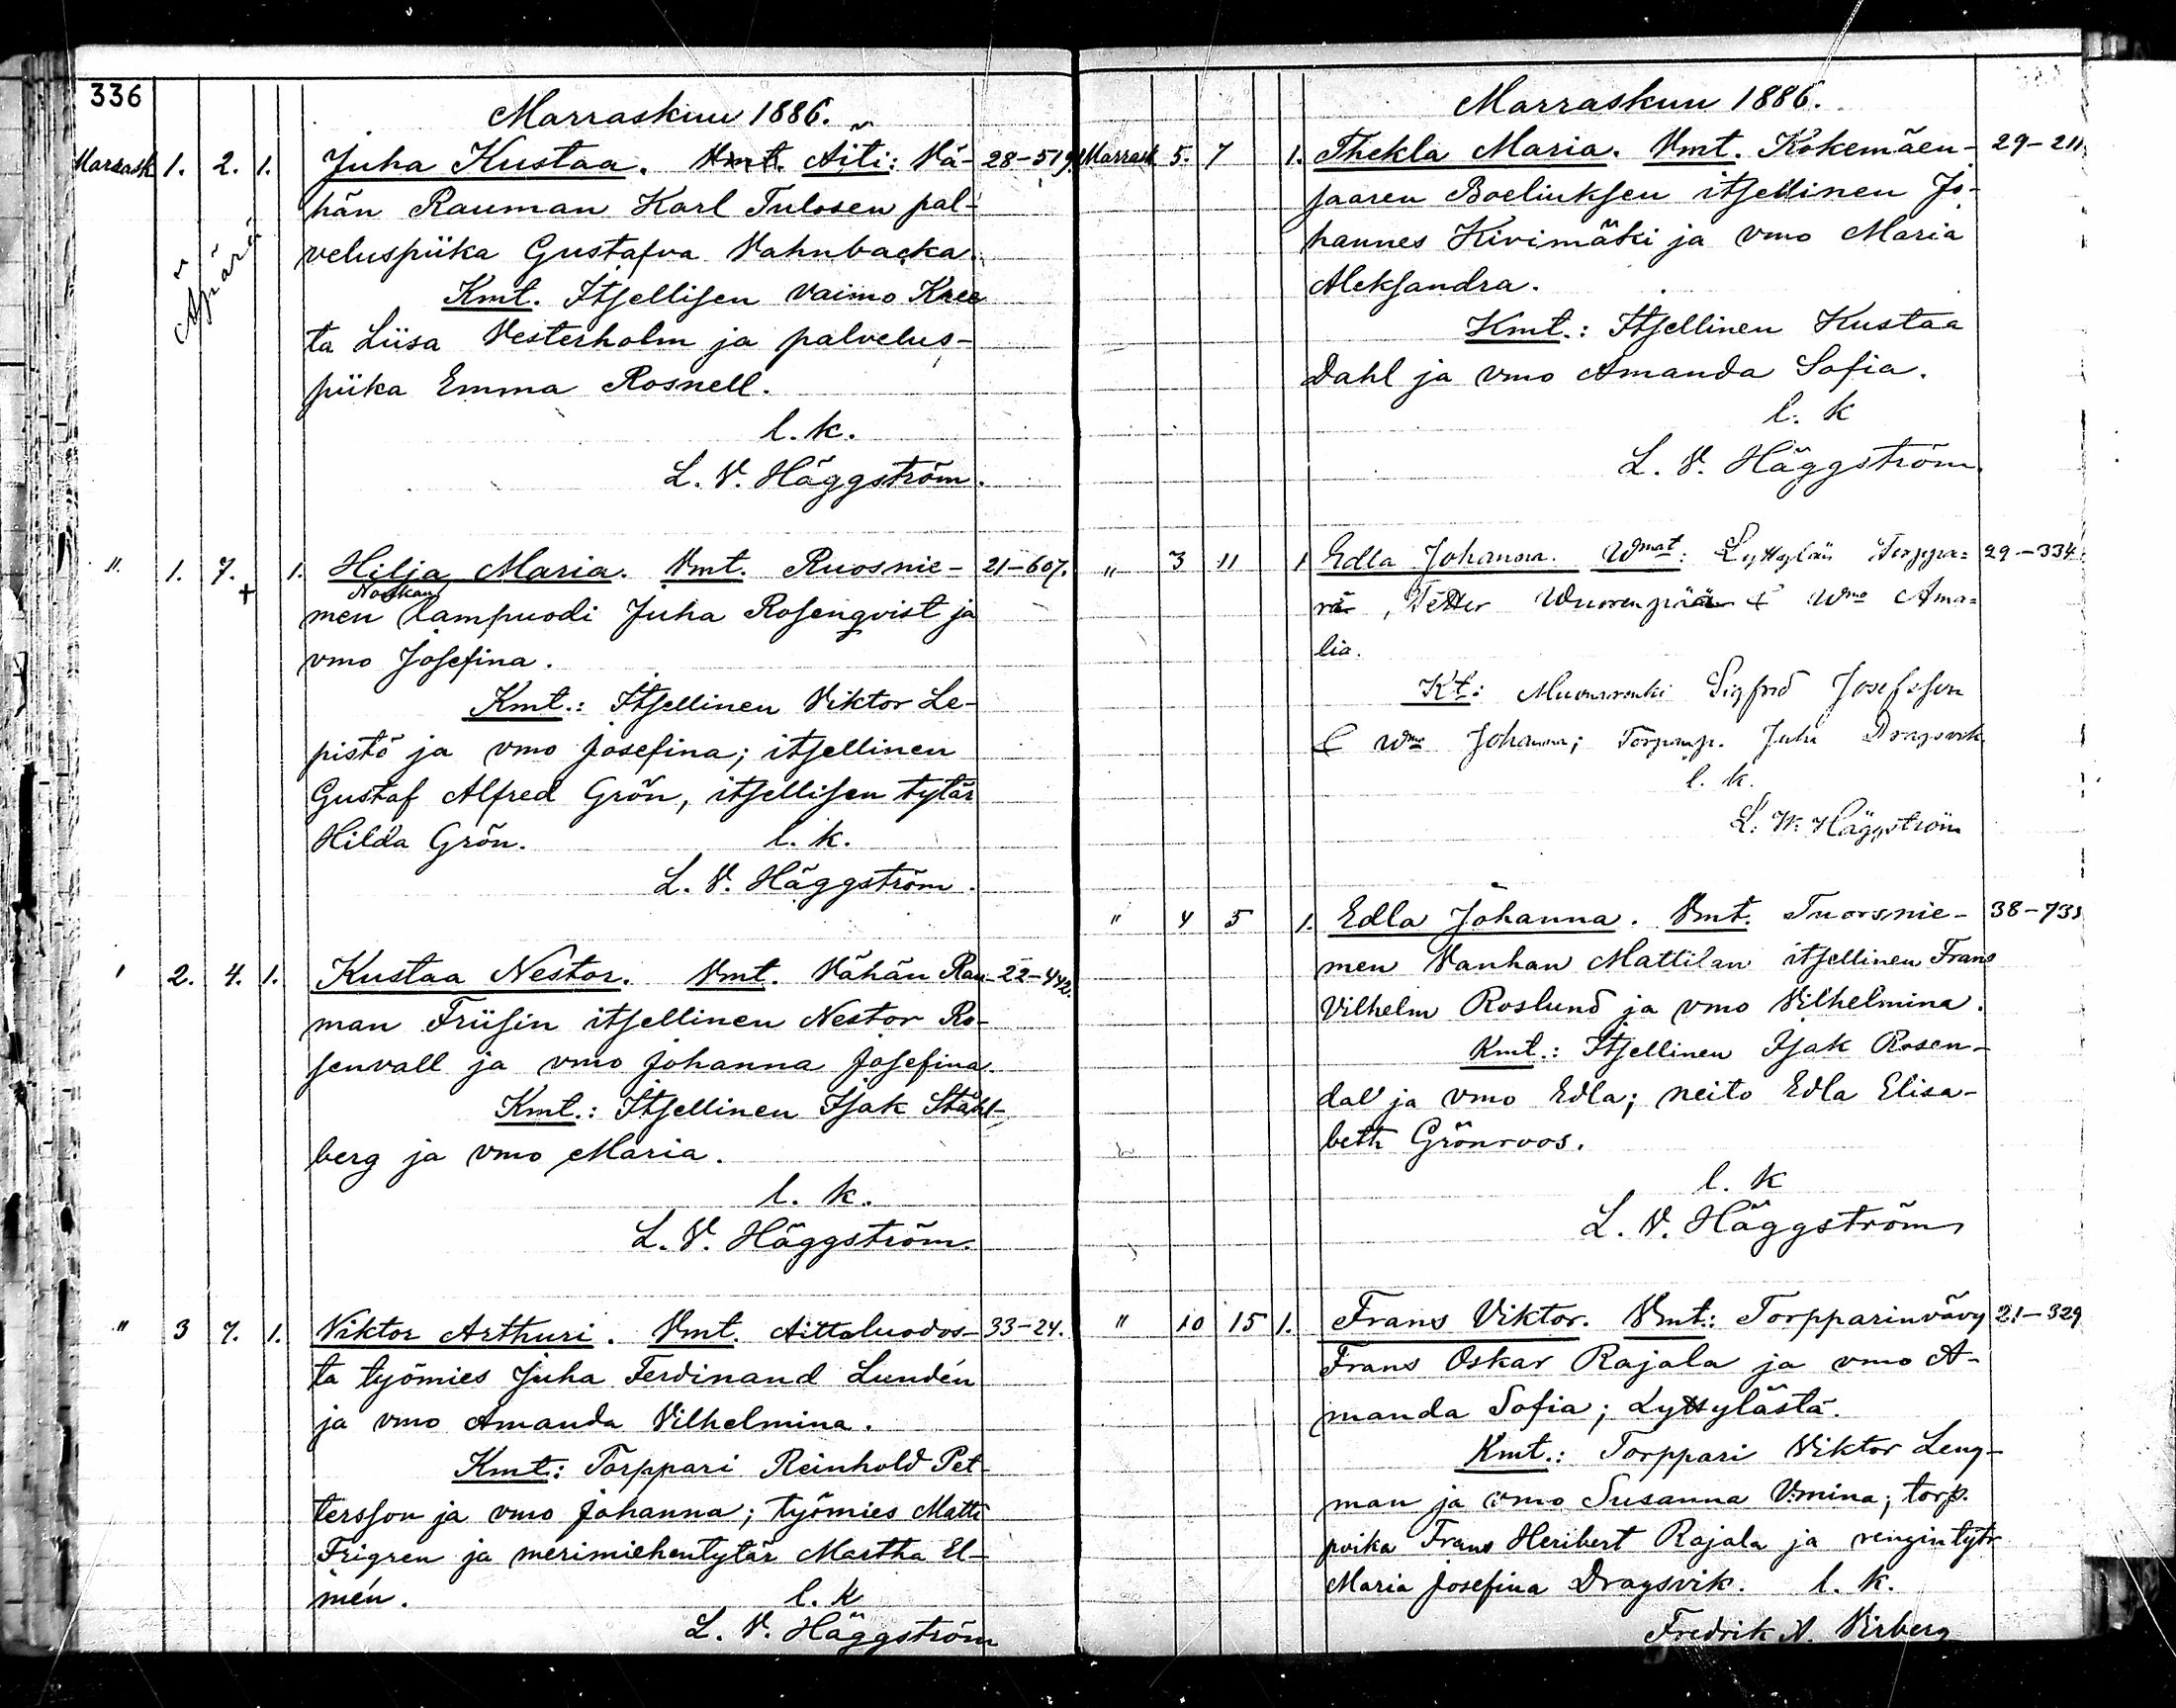 336
Marraskuu 1886.
Marrask 1. 2. 1. Juha Kustaa. Vmt. Äiti: Vä- 28-519.
hän Rauman Karl Tulosen pal-
veluspiika Gustafva Vahnbacka.
Äpärä
Kmt. Itsellisen vaimo Kree
ta Liisa Vesterholm ja palvelus-
piika Emma Rosnell.
l. k.
L. V. Häggström.
" 1. 7. 1. Hilja Maria. Vmt. Ruosnie- 21-607.
+ Noskan
men lampuodi Juha Rosenqvist ja
vmo Josefina.
Kmt.: Itsellinen Viktor Le-
pistö ja vmo Josefina; itsellinen
Gustaf Alfred Grön, itsellisen tytär
Hilda Grön. l. k.
L. V. Häggström.
" 2. 4. 1. Kustaa Nestor. Vmt. Vähän Rau- 22-442.
man Friisin itsellinen Nestor Ro-
senvall ja vmo Johanna Josefina.
Kmt.: Itsellinen Isak Ståhl-
berg ja vmo Maria.
l. k.
L. V. Häggström.
" 3 7. 1. Viktor Arthuri. Vmt. Aittaluodos- 33-24.
ta työmies Juha Ferdinand Lundén
ja vmo Amanda Vilhelmina.
Kmt: Torppari Reinhold Pet-
tersson ja vmo Johanna; työmies Matti
Frigren ja merimiehentytär Martha El-
mén. l. k
L. V. Häggström
Marraskuu 1886.
Marrask 5. 7 1. Thekla Maria. Vmt. Kokemäen- 29-211
saaren Boeliuksen itsellinen Jo-
hannes Kivimäki ja vmo Maria
Aleksandra.
Kmt.: Itsellinen Kustaa
Dahl ja vmo Amanda Sofia.
l. k
L. V. Häggström.
" 3 11 1 Edla Johanna. Wmat: Lyttylän Torppa= 29-334
ri, Petter Wuorenpää & Wmo Ama=
lia.
Kt: Sigfrid Josefsson
& Wmo Johanna; Torpanp. Juha Dragsvik
l. k.
L. W. Häggström
" 4 5 1. Edla Johanna. Vmt. Tuorsnie- 38-731
men Vanhan Mattilan itsellinen Frans
Vilhelm Roslund ja vmo Vilhelmina.
Kmt.: Itsellinen Isak Rosen-
dal ja vmo Edla; neito Edla Elisa-
beth Grönroos.
l. k
L. V. Häggström
" 10 15 1. Frans Viktor. Vmt.: Torpparinvävy 21-329
Frans Oskar Rajala ja vmo A-
manda Sofia; Lyttylästä.
Kmt.: Torppari Viktor Leng-
man ja vmo Susanna V:mina; torp.
poika Frans Heribert Rajala ja rengin tytr
Maria Josefina Dragsvik. l. k.
Fredrik A. Virberg